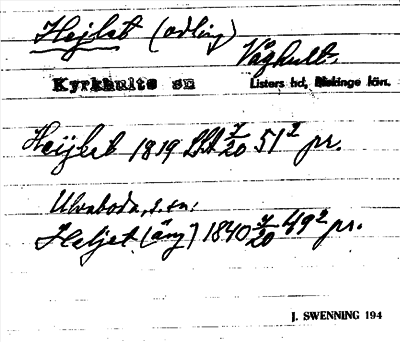 Hejlet (odling)
Våghult.
Kyrkhults sn Listers hd, Blekinge län.
Heijlet 1819 LSA 7/20 51² pr.
Ulvaboda, s. sn:
Heljet (äng) 1840 7/20 49² pr.
J. SWENNING 194